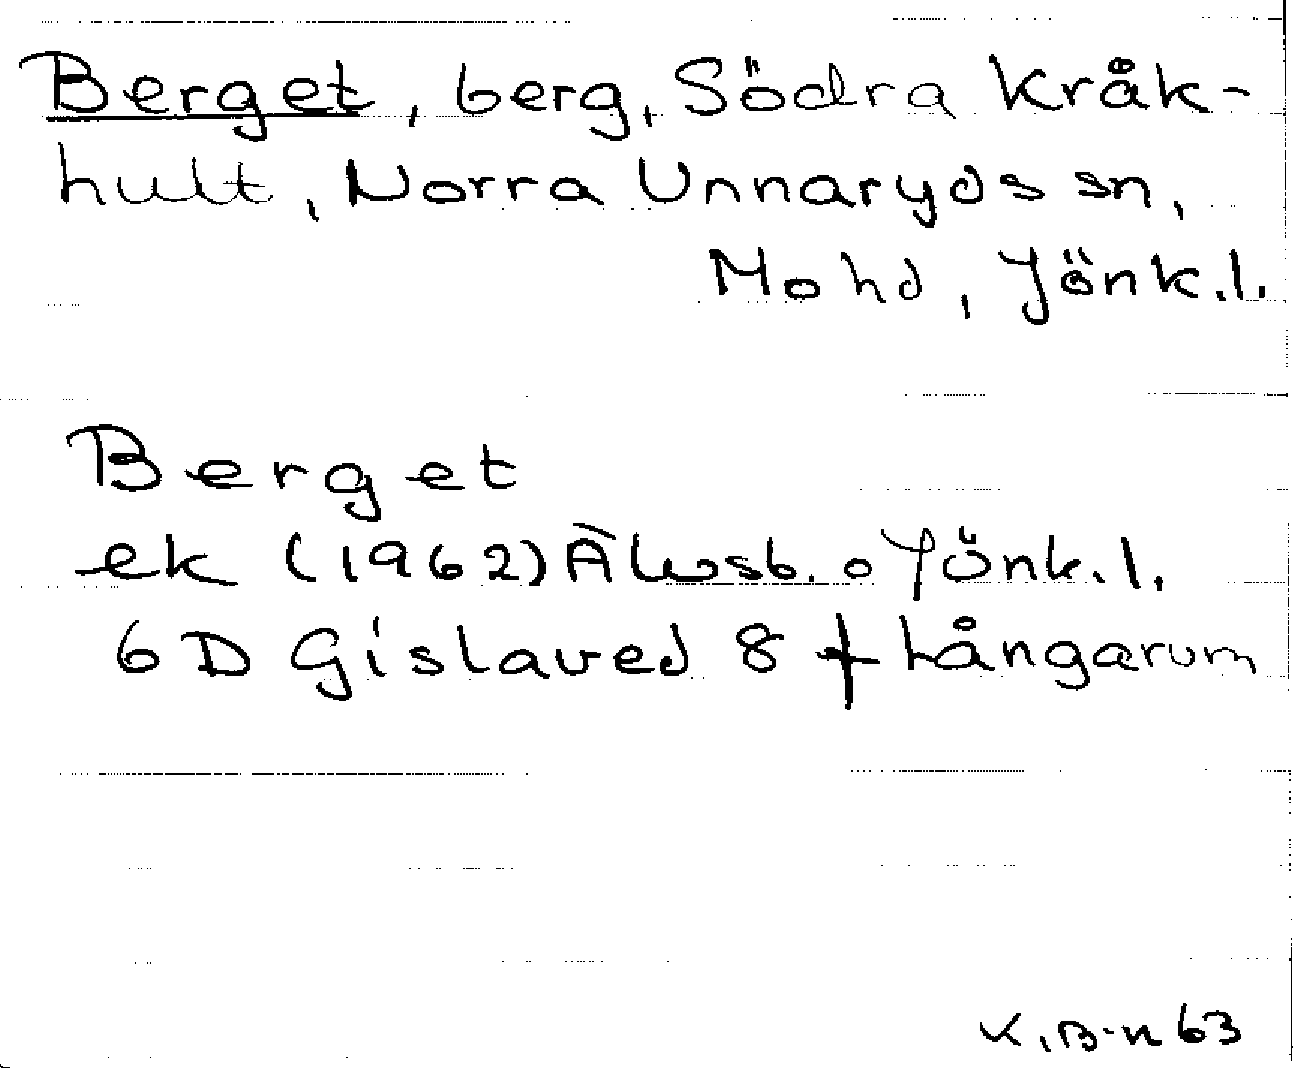 Berget, berg, Södra Kråk-
hult, Norra Unnaryds sn,
Mohd, Jönk.l.
Berget
ek (1962) Älvsb. o Jönk.l.
6D Gislaved 8 f Långarum
K.B-n 63